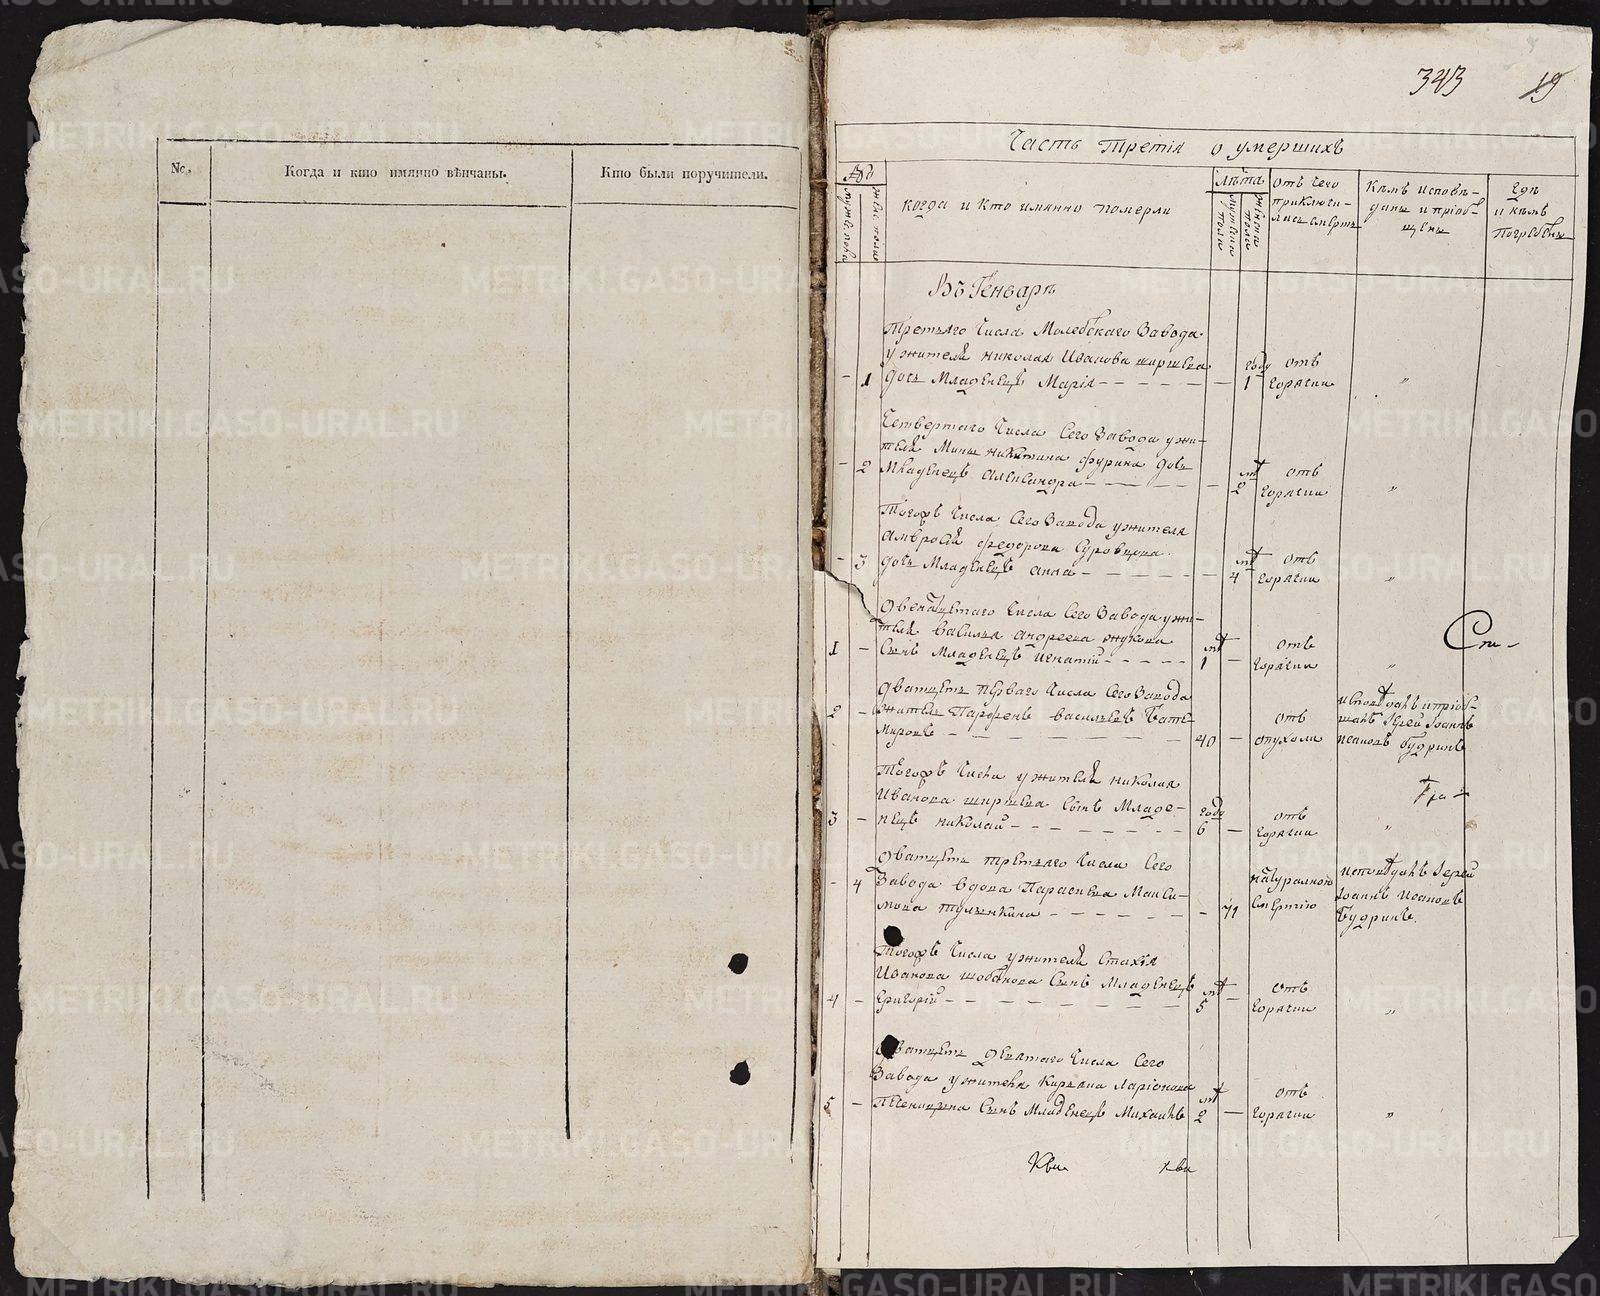 №.
Когда и кто имянно вѣнчаны.
Кто были поручители.
343 19
Часть третія о умершихъ
когда и кто имянно померли
лѣта
отъ чего
приключи-
лась смерть
Кѣмъ исповѣ-
даны и пріоб-
щены
Гдѣ
и кѣмъ
погребены
муж. пола
жен. полу
Въ Генварѣ
Третьяго Числа Молебскаго Завода
у жителя николая Иванова ширшева
1 дочь Младенецъ Марія
году 1
отъ горячки
Четвертаго Числа Сего Завода у жи-
теля Мины никитина фурина дочь
2 Младенецъ александра
2
отъ горячки
Тогожъ Числа Сего Завода у жителя
амвросія федорова Суровцова
3 дочь Младенецъ анна
4
отъ горячки
двенатцетаго Числа Сего Завода у жи-
теля василья андреева жукова
1 Сынъ Младенецъ игнатій
1
отъ горячки
дватцеть перваго Числа Сего Завода
2 житель Парфенъ васильевъ
40
отъ опухоли
исповѣдалъ и пріоб-
щалъ Іерей Іоаннъ
Исаковъ Будринъ
Тогожъ Числа у жителя николая
Иванова ширшева Сынъ Младе-
3 нецъ николай
году 6
отъ горячки
дватцеть третьяго Числа Сего
4 Завода вдова Параскева Макси-
мова
71
натуралною
смертію
исповѣдалъ Іерей
Іоаннъ Исаковъ
Будринъ.
Тогожъ Числа у жителя Стахія
Иванова шобанова Сынъ Младенецъ
4 Григорій
5
отъ горячки
дватцеть девятаго Числа Сего
Завода у жителя Кирьяна Ларіонова
5 Сынъ Младенецъ Михаилъ
2
отъ горячки